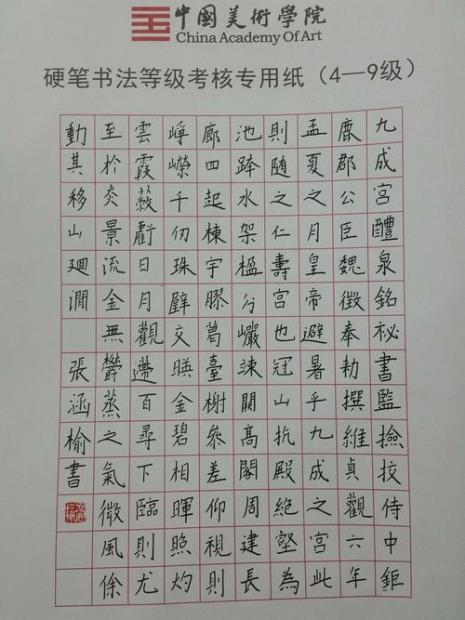 中國美術學院
China Academy Of Art
硬笔书法等级考核专用纸（4—9级）
九成宮醴泉銘祕書監撿挍侍中鉅
鹿郡公臣魏徵奉勅撰維貞觀六年
孟夏之月皇帝避暑乎九成之宮此
則随之仁壽宮也冠山抗殿絶壑為
池跨水架楹分巖竦闕高閣周建長
廊四起棟宇膠葛臺榭叅差仰視則
崢嶸千仞珠壁交暎金碧相暉照灼
雲霞蔽虧日月觀遰百尋下臨則尤
至於炎景流金無鬱蒸之氣微風徐
動其移山廻澗
張涵榆書